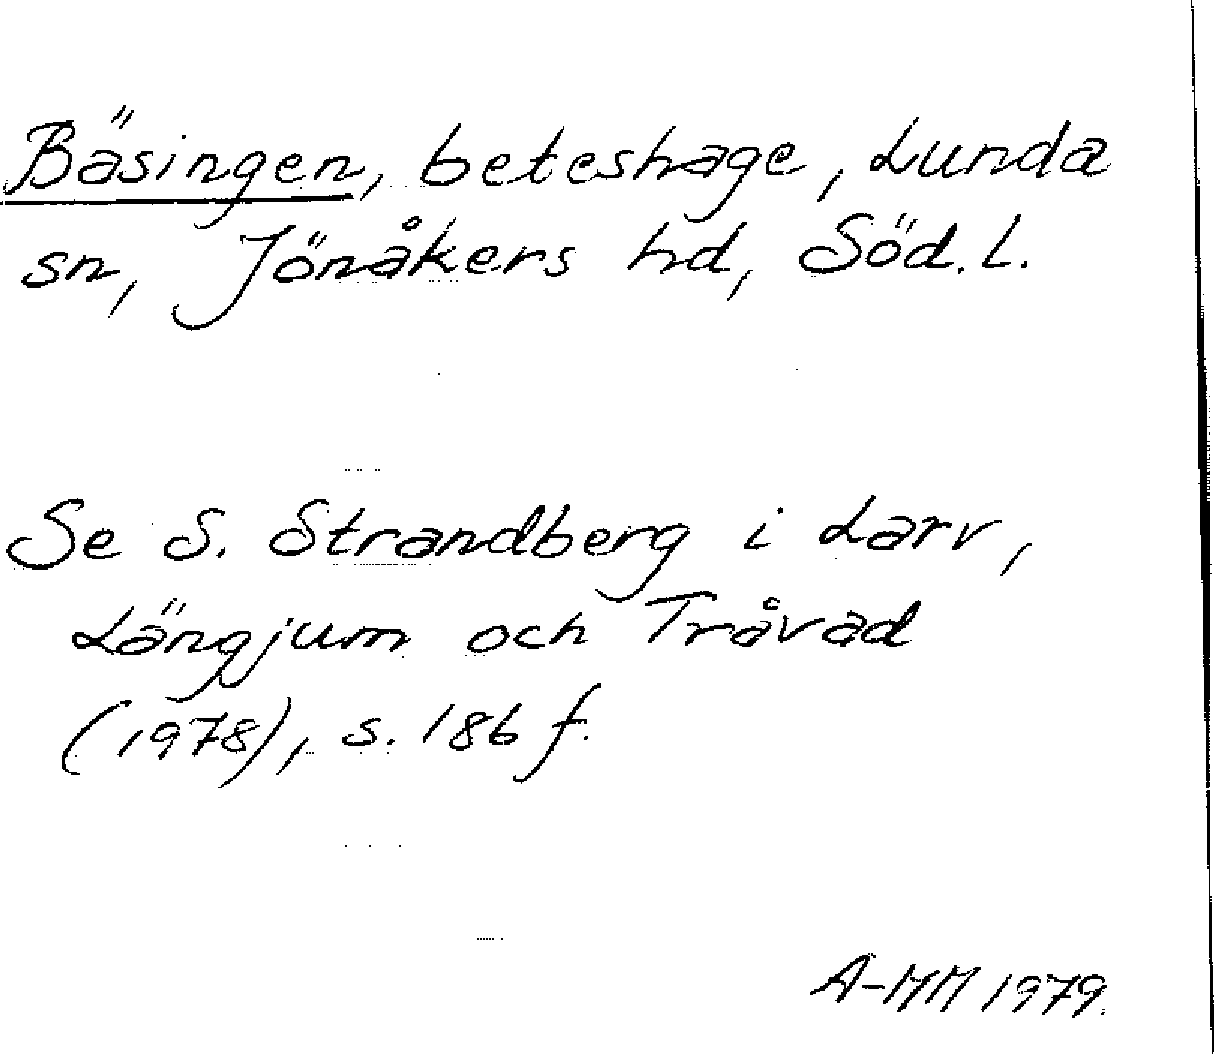 Bäsingen, beteshage, Lunda
sn, Jönåkers hd, Söd. l.
Se S. Strandberg i Larv,
Längjum och Tråvad
(1978), s. 186 f.
A-MM 1979.